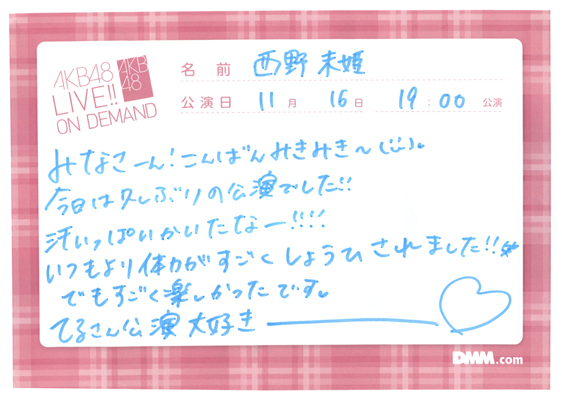 AKB48
LIVE!!
ON DEMAND
AKB
48
名前 西野 未姫
公演日 11月 16日 19:00 公演
みなさーん!こんばんみきみき〜(¨̮)。
今日は久しぶりの公演でした!!
汗いっぱいかいたなー!!!!
いつもより体力がすごくしょうひされました!!
でもすごく楽しかったです。
てるさん公演大好き
DMM.com